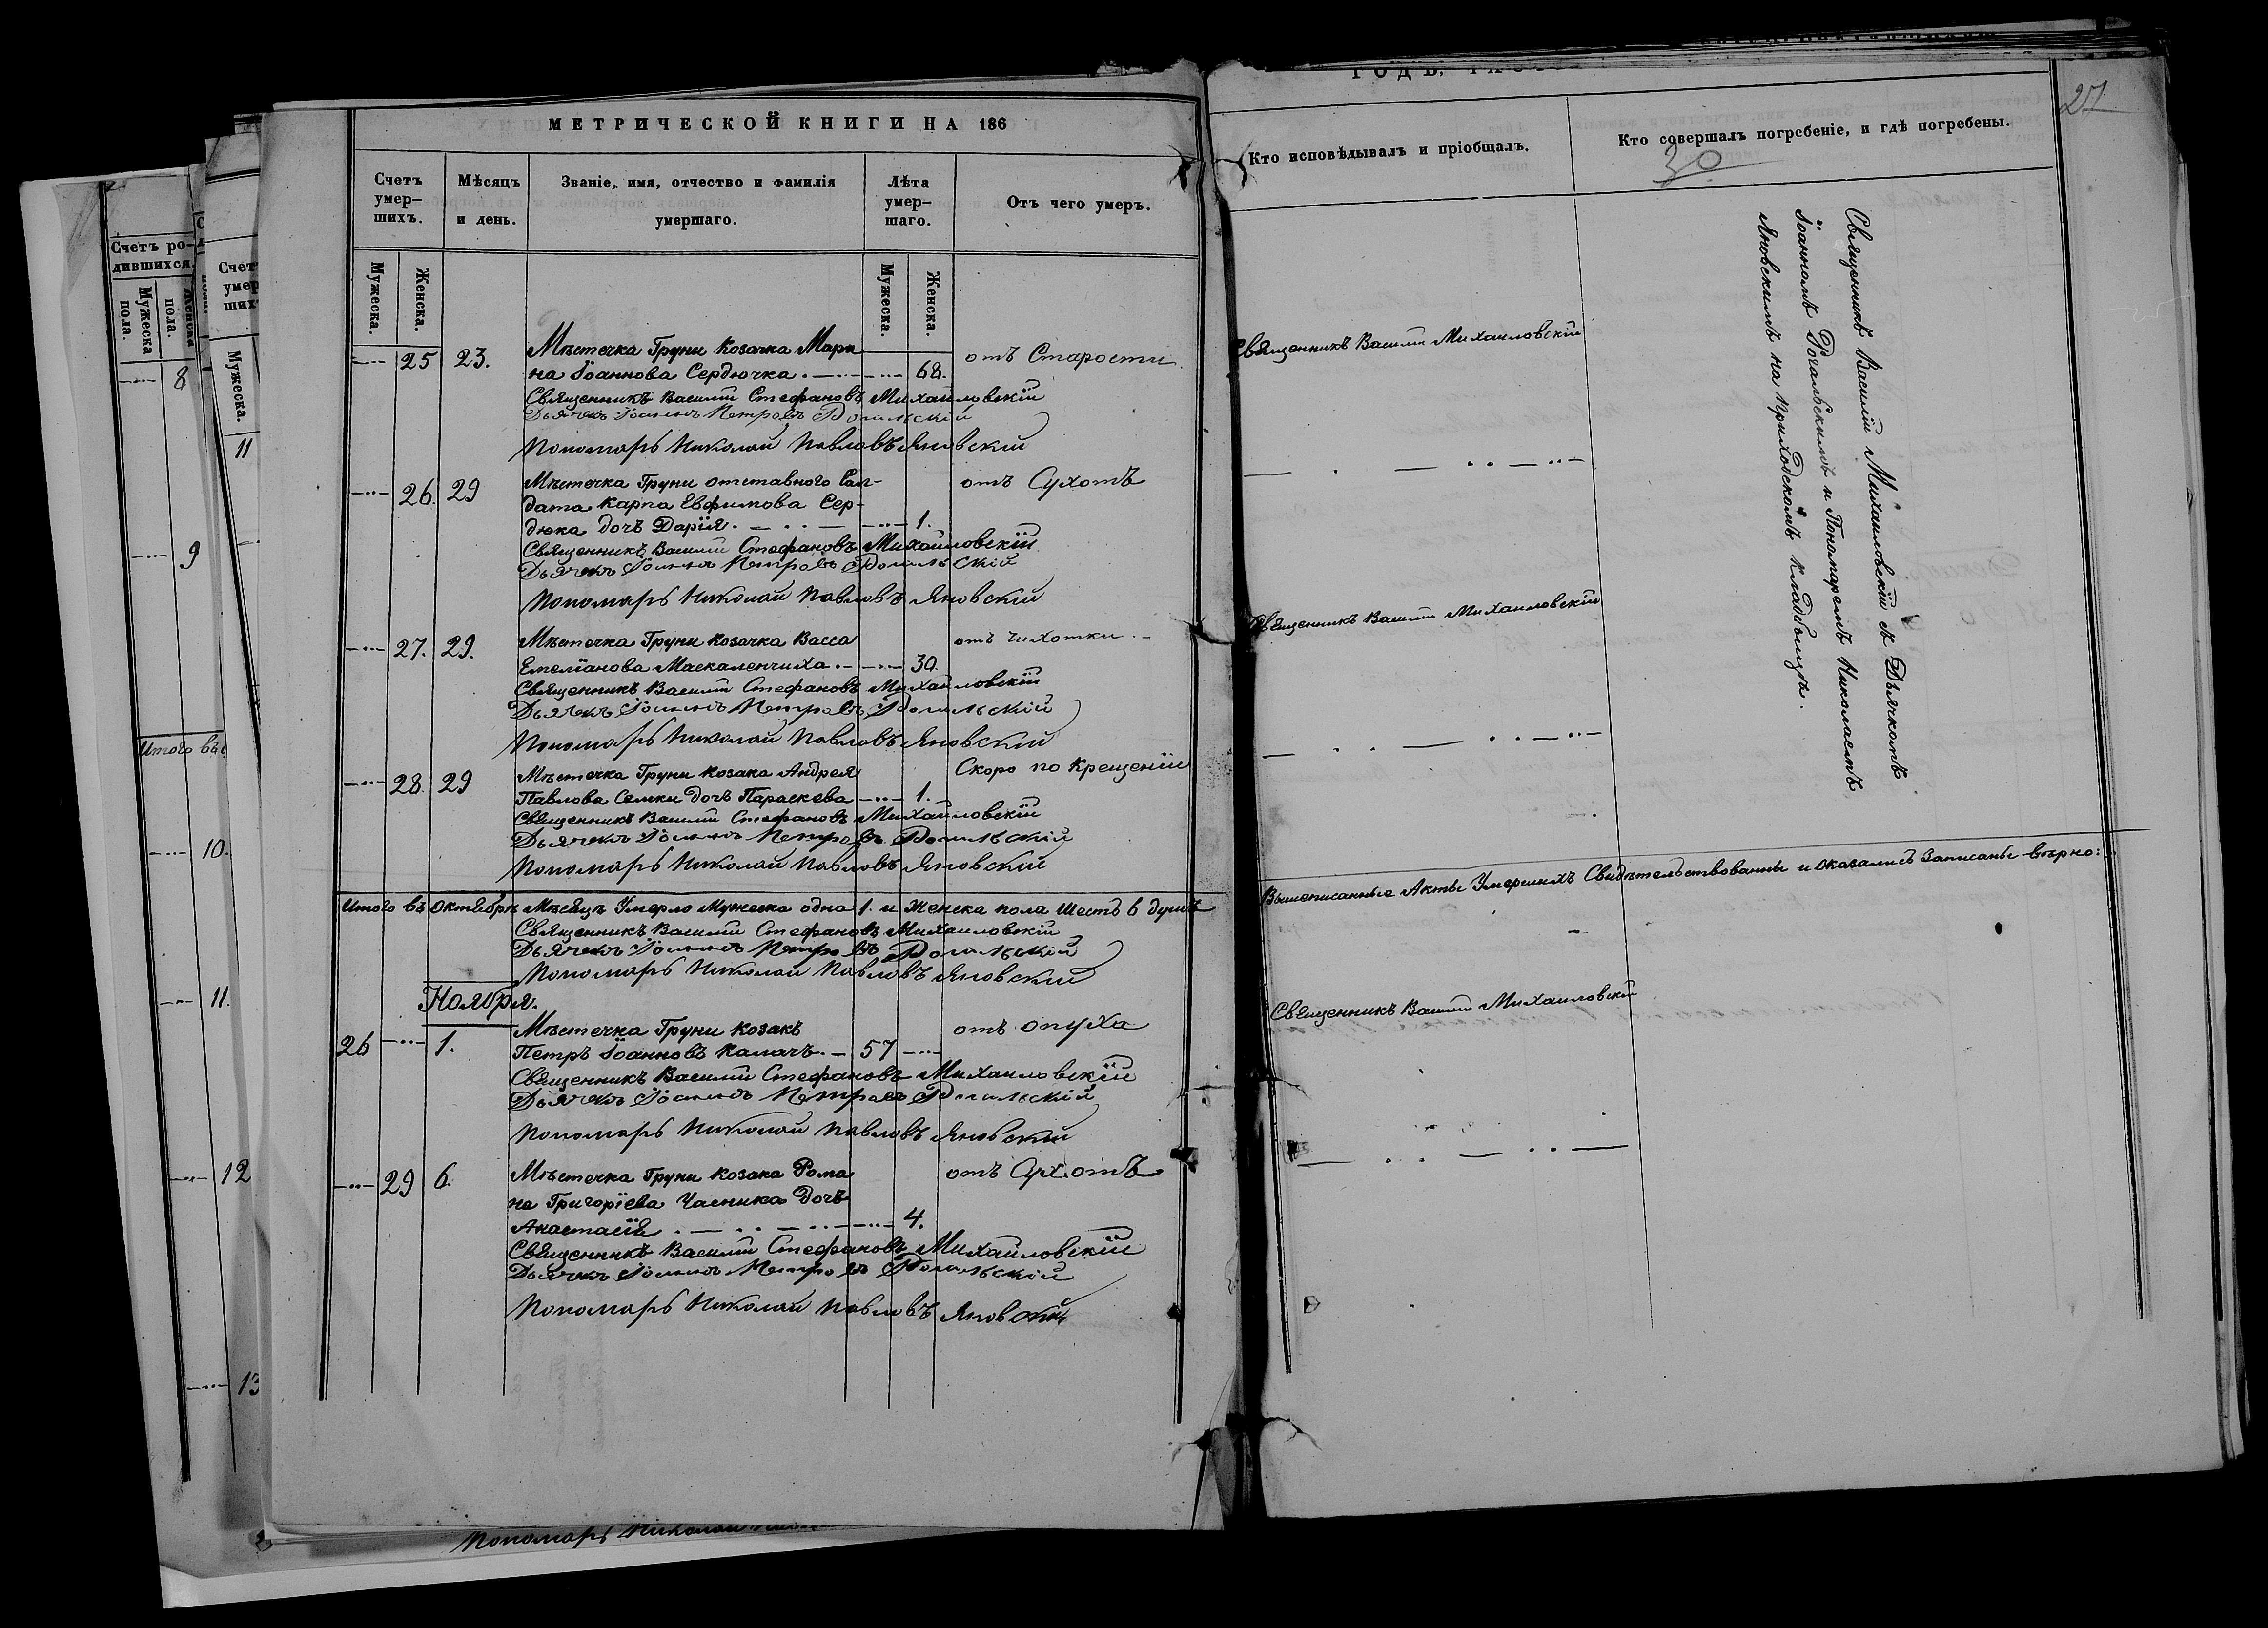 МЕТРИЧЕСКОЙ КНИГИ НА 186
Счетъ умер-шихъ.
Мѣсяцъ и день.
Званіе, имя, отчество и фамилія умершаго.
Лѣта умер-шаго.
Отъ чего умеръ.
Мужеска.
Женска.
Мужеска.
Женска.
25 23. Мѣстечка Груни Козачка Мари
на Іоаннова Сердючка. 68. отъ Старости.
Священникъ Василій Стефановъ Михайловскій
Дьячекъ Іоаннъ Петровъ Рогальскій
Пономарь Николай Павловъ Яновскій
26. 29 Мѣстечка Груни отставного Сал-
дата Карпа Евфимова Сер-
дюка дочь Дарія. 1. отъ Сухотъ
Священникъ Василій Стефановъ Михайловскій
Дьячекъ Іоаннъ Петровъ Рогальскій
Пономарь Николай Павловъ Яновскій
27. 29. Мѣстечка Груни Козачка Васса
Емеліанова Маскаленчиха. 30. отъ чихотки.
Священникъ Василій Стефановъ Михайловскій
Дьячекъ Іоаннъ Петровъ Рогальскій
Пономарь Николай Павловъ Яновскій
28. 29 Мѣстечка Груни Козака Андрея
Павлова Семки дочь Параскева 1. Скоро по Крещеніи
Священникъ Василій Стефановъ Михайловскій
Дьячекъ Іоаннъ Петровъ Рогальскій
Пономарь Николай Павловъ Яновскій
Итого въ Октябрѣ Мѣсяцѣ Умерло Мужеска одна 1. и Женска пола Шесть 6 душъ
Священникъ Василій Стефановъ Михайловскій
Дьячекъ Іоаннъ Петровъ Рогальскій
Пономарь Николай Павловъ Яновскій
Ноября.
26 1. Мѣстечка Груни Козакъ
Петръ Іоанновъ Калачъ. 57 отъ опуха
Священникъ Василій Стефановъ Михайловскій
Дьячекъ Іоаннъ Петровъ Рогальскій
Пономарь Николай Павловъ Яновскій
29 6. Мѣстечка Груни Козака Рома
на Григоріева Часника Дочь
Анастасія 4. отъ Сухотъ
Священникъ Василій Стефановъ Михайловскій
Дьячекъ Іоаннъ Петровъ Рогальскій
Пономарь Николай Павловъ Яновскій
27
Кто исповѣдывалъ и пріобщалъ.
Кто совершалъ погребеніе, и гдѣ погребены.
30
Священникъ Василій Михайловскій
Священникъ Василій Михайловскій
Священникъ Василій Михайловскій съ Дьячкомъ
Іоанномъ Рогальскимъ и Пономаремъ Николаемъ
Яновскимъ на приходскомъ кладбищѣ.
Вышеписанные Акты Умершихъ Свидѣтельствованны и оказались Записаны вѣрно:
Священникъ Василій Михайловскій
Счетъ ро-дившихся.
Мужеска пола.
Женска пола.
8
9
Итого въ
10.
11.
12
13
Мужеска.
11
Пономарь Николай